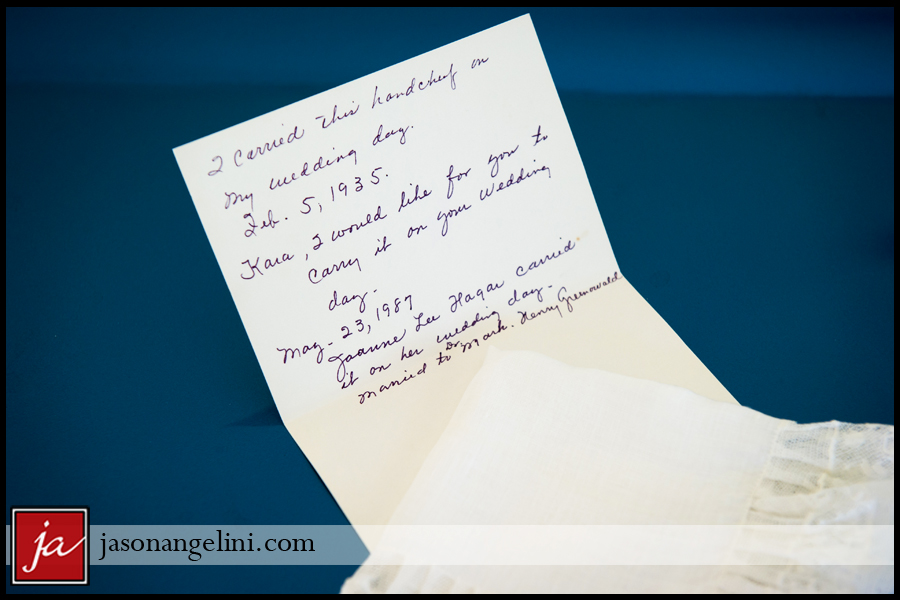 I carried this handcheif on
my wedding day.
Feb. 5, 1935.
Kara, I would like for you to
carry it on your wedding
day.
May. 23, 1987
Joanne Lee Hagar carried
it on her wedding day.
married to Dr. Mark. Henry Greenowald
ja
jasonangelini.com